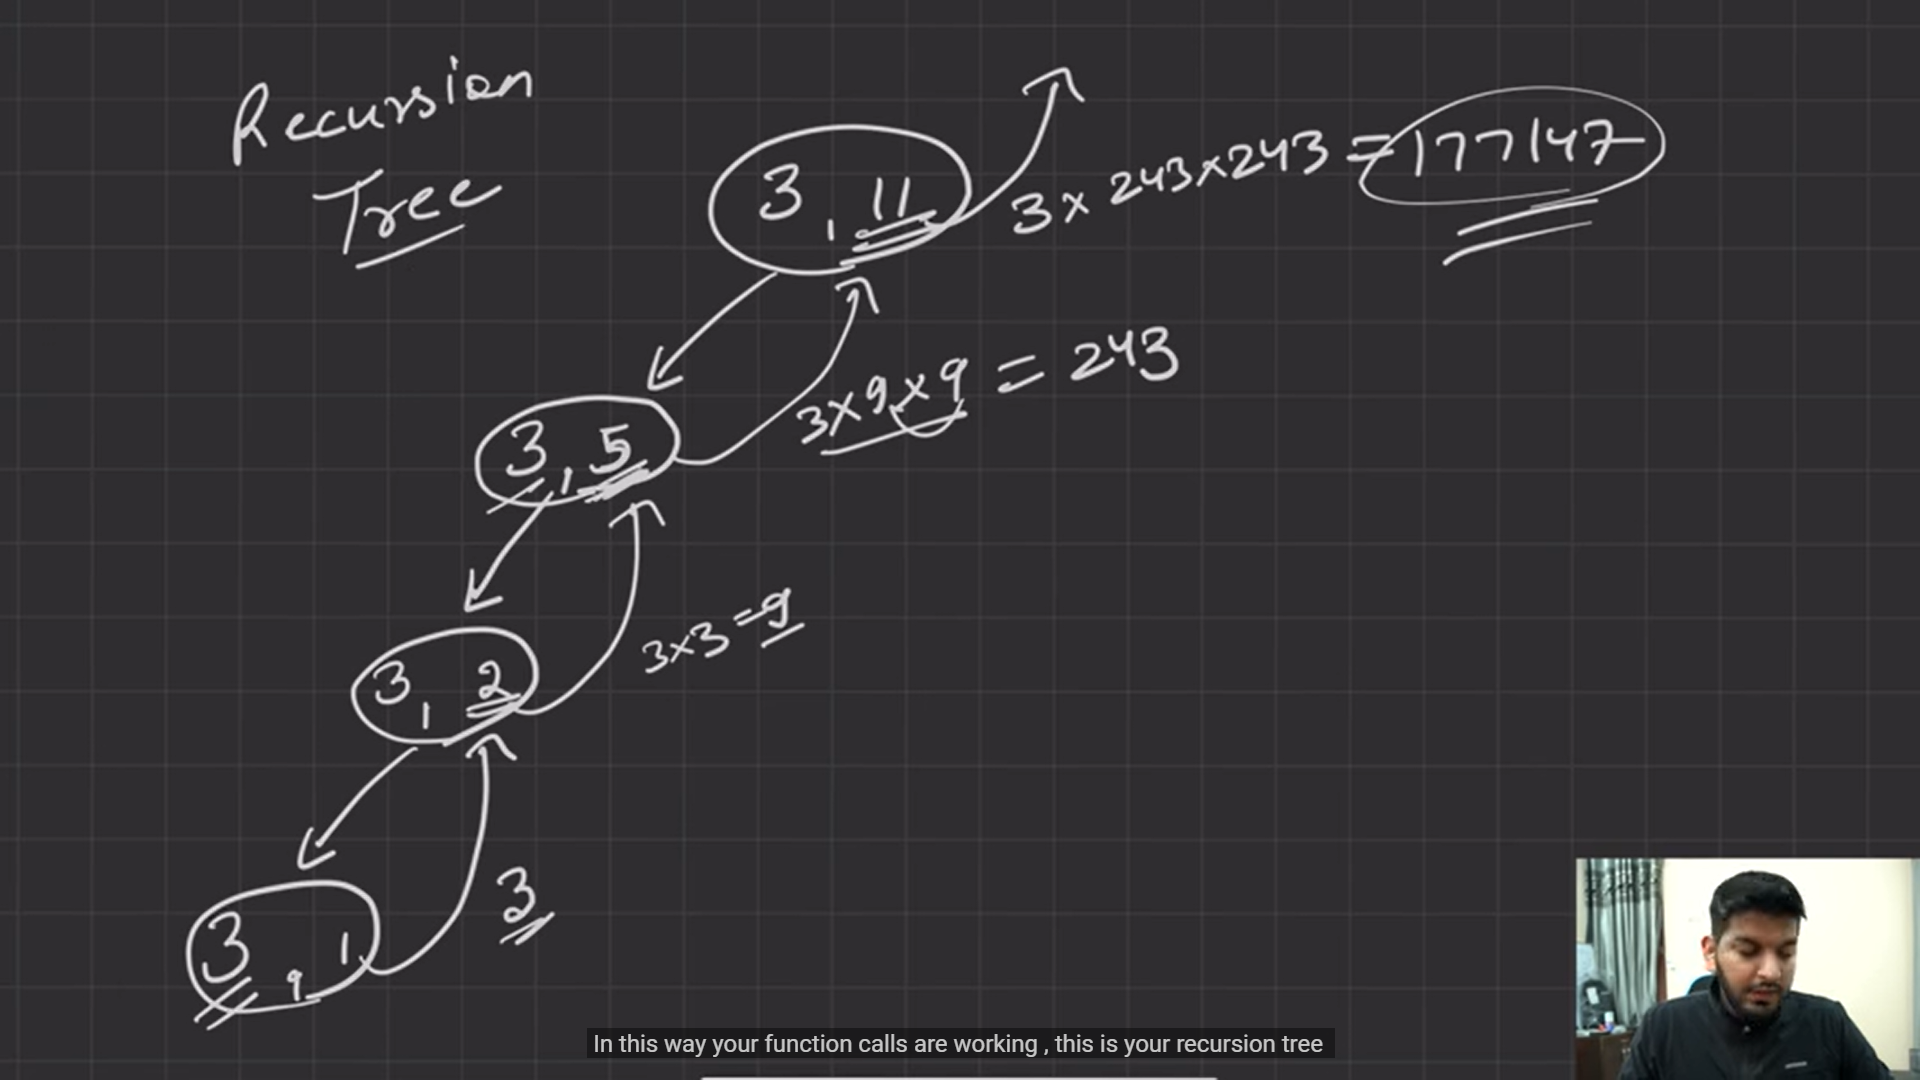 Recursion
Tree
3, 11
3 x 243 x 243 = 177147
3, 5
3 x 9 x 9 = 243
3, 2
3 x 3 = 9
3, 1
3
In this way your function calls are working , this is your recursion tree